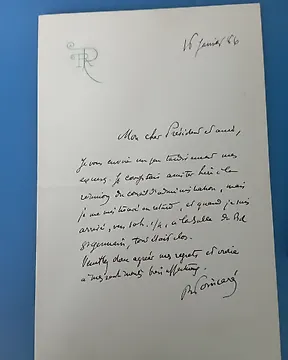 RP
16 janvier 86
Mon cher Président et ami,
Je vous envoie un peu tardivement mes
excuses. Je comptais assister hier à la
réunion du conseil d'administration, mais
je me suis trouvé en retard et quand je suis
arrivé, vers 10 h. 1/4, à la salle du Bd
St germain, tout était clos.
Veuillez donc agréer mes regrets et croire
à mes sentiments bien affectueux.
R. Poincaré